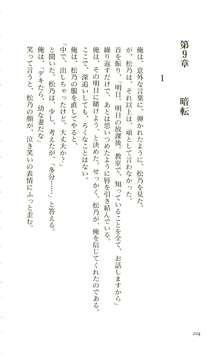 第9章　暗転
1
俺は、意外な言葉に、弾かれたように、松乃を見た。
が、松乃は、それ以上は、頑として言わなかった。
首を振り、「明日、明日の放課後、教室で、知っていることを全て、お話しますから」と
繰り返すだけで、あとは思いつめたように唇を引き結んでいる。
俺は、その明日に賭けよう、と決めた。せっかく、松乃が、俺を信じてくれたのである。
ここで、深追いしても、ろくなことはない。
俺は、松乃の服を直してやると、
中で、出しちゃったけど、大丈夫か？」
と聞いた。松乃は、ちょっと考えたが、「多分……」と答える。
俺は、「デキたら、幼な妻だな」
笑って言うと、松乃の顔が、泣き笑いの表情にふっと歪む。
204